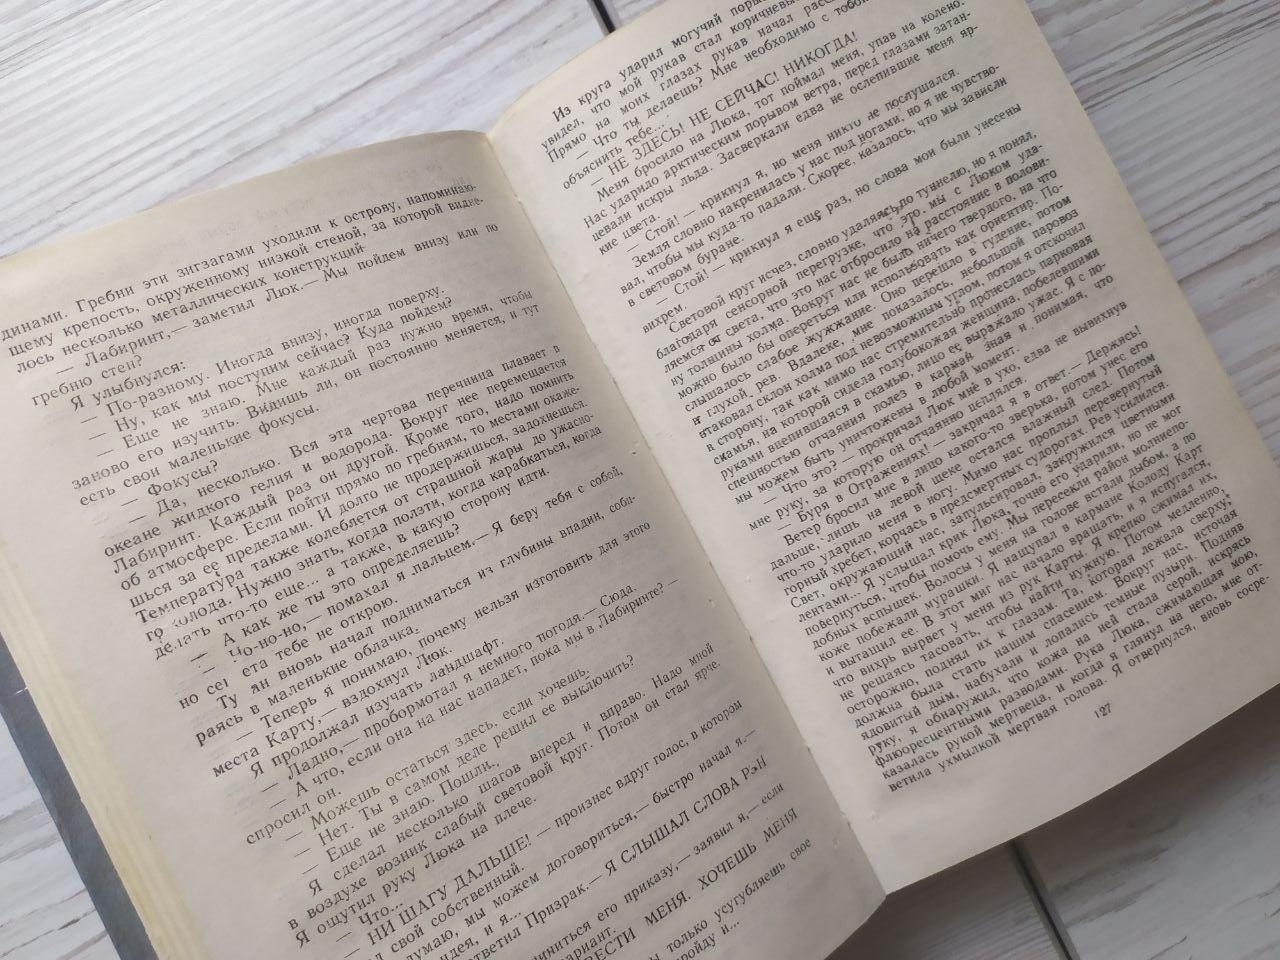 динами. Гребни эти зигзагами уходили к острову, напоминаю-
щему крепость, окруженному низкой стеной, за которой видне-
лось несколько металлических конструкций.
— Лабиринт,— заметил Люк.— Мы пойдем внизу или по
гребню стен?
Я улыбнулся:
— По-разному. Иногда внизу, иногда поверху.
— Ну, как мы поступим сейчас? Куда пойдем?
— Еще не знаю. Мне каждый раз нужно время, чтобы
заново его изучить. Видишь ли, он постоянно меняется, и тут
есть свои маленькие фокусы.
— Фокусы?
— Да, несколько. Вся эта чертова перечница плавает в
океане жидкого гелия и водорода. Вокруг нее перемещается
Лабиринт. Каждый раз он другой. Кроме того, надо помнить
об атмосфере. Если пойти прямо по гребням, то местами окаже-
шься за ее пределами. И долго не продержишься, задохнешься.
Температура также колеблется от страшной жары до ужасно-
го холода. Нужно знать, когда ползти, когда карабкаться, когда
делать что-то еще... а также, в какую сторону идти.
— А как же ты это определяешь?
— Но-но-но,— помахал я пальцем.— Я беру тебя с собой,
но сек ета тебе не открою.
Ту ан вновь начал подниматься из глубины впадин, соби-
раясь в маленькие облачка.
— Теперь я понимаю, почему нельзя изготовить для этого
места Карту,— вздохнул Люк.
Я продолжал изучать ландшафт.
— Ладно,— пробормотал я немного погодя.— Сюда.
— А что, если она на нас нападет, пока мы в Лабиринте? —
спросил он.
— Можешь остаться здесь, если хочешь.
— Нет. Ты в самом деле решил ее выключить?
— Еще не знаю. Пошли.
Я сделал несколько шагов вперед и вправо. Надо мной
в воздухе возник слабый световой круг. Потом он стал ярче.
Я ощутил руку Люка на плече.
— Что...
— НИ ШАГУ ДАЛЬШЕ! — произнес вдруг голос, в котором
л свой собственный.
думаю, мы можем договориться,— быстро начал я.—
идея, и я...
ответил Призрак.— Я СЛЫШАЛ СЛОВА РЭН
чиниться его приказу,— заявил я,— если
вариант.
ВЕСТИ МЕНЯ. ХОЧЕШЬ МЕНЯ
ты только усугубляешь свое
пройду и...
Из круга ударил могучий порыв
увидел, что мой рукав стал коричневым
Прямо на моих глазах рукав начал расс
— Что ты делаешь? Мне необходимо с тобой
объяснить тебе...
— НЕ ЗДЕСЬ! НЕ СЕЙЧАС! НИКОГДА!
Меня бросило на Люка, тот поймал меня, упав на колено.
Нас ударило арктическим порывом ветра, перед глазами затан-
цевали искры льда. Засверкали едва не ослепившие меня яр-
кие цвета.
— Стой! — крикнул я, но меня никто не послушался.
Земля словно накренилась у нас под ногами, но я не чувство-
вал, чтобы мы куда-то падали. Скорее, казалось, что мы зависли
в световом буране.
— Стой! — крикнул я еще раз, но слова мои были унесены
вихрем.
Световой круг исчез, словно удаляясь по туннелю, но я понял,
благодаря сенсорной перегрузке, что это, мы с Люком уда-
ляемся от света, что это нас отбросило на расстояние в полови-
ну толщины холма. Вокруг нас не было ничего твердого, на что
можно было бы опереться или использовать как ориентир. По-
слышалось слабое жужжание. Оно перешло в гудение, потом
в глухой рев. Вдалеке, мне показалось, небольшой паровоз
атаковал склон холма под невозможным углом, потом я отскочил
в сторону, так как мимо нас стремительно пронеслась парковая
скамья, на которой сидела голубокожая женщина, побелевшими
руками вцепившаяся в скамью, лицо ее выражало ужас. Я с по-
спешностью отчаяния полез в карман, зная и понимая, что
мы можем быть уничтожены в любой момент.
— Что это? — прокричал Люк мне в ухо, едва не вывихнув
мне руку, за которую он отчаянно цеплялся.
— Буря в Отражениях! — закричал я в ответ.— Держись!
Ветер бросил мне в лицо какого-то зверька, потом унес его
дальше, лишь на левой щеке остался влажный след. Потом
что-то ударило меня в ногу. Мимо нас проплыл перевернутый
горный хребет, корчась в предсмертных судорогах. Рев усилился.
Свет, окружающий нас, запульсировал, закружился цветными
лентами... Я услышал крик Люка, точно его ударили, но не мог
повернуться, чтобы помочь ему. Мы пересекли район молниепо-
добных вспышек. Волосы у меня на голове встали дыбом, а по
коже побежали мурашки. Я нащупал в кармане Колоду Карт
и вытащил ее. В этот миг нас начало вращать, и я испугался,
что вихрь вырвет у меня из рук Карты. Я крепко сжимал их,
не решаясь тасовать, чтобы найти нужную. Потом медленно,
осторожно, поднял их к глазам. Та, которая лежала сверху,
должна была стать нашим спасением. Вокруг нас, источая
ядовитый дым, набухали и лопались темные пузыри. Подняв
руку, я обнаружил, что кожа на ней стала серой, искрясь
флюоресцентными разводами. Рука Люка, сжимающая мою,
казалась рукой мертвеца, и когда я глянул на него, мне от-
ветила ухмылкой мертвая голова. Я отвернулся, вновь сосре-
127